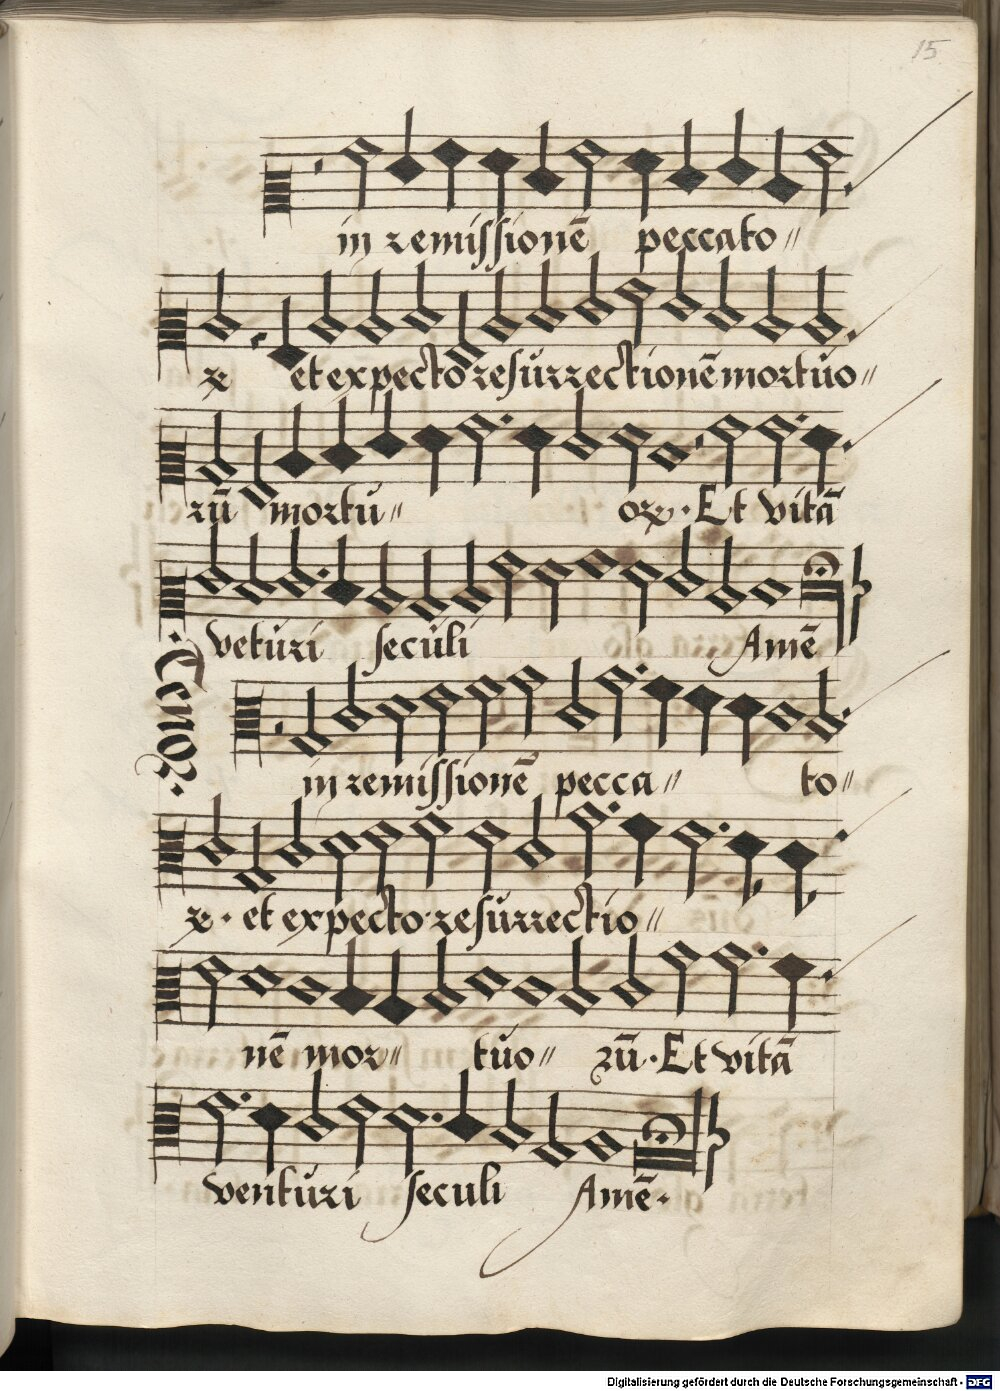 15
in remissionē peccato〃
ꝝ et expecto resurrectionē mortuo〃
rū mortu〃 oꝝ · Et vitā
vēturi seculi Amē
Tenor
in remissionē pecca〃 to〃
ꝝ · et expecto resurrectio〃
nē mor〃 tuo〃 rū · Et vitā
venturi seculi Amē ·
Digitalisierung gefördert durch die Deutsche Forschungsgemeinschaft - DFG